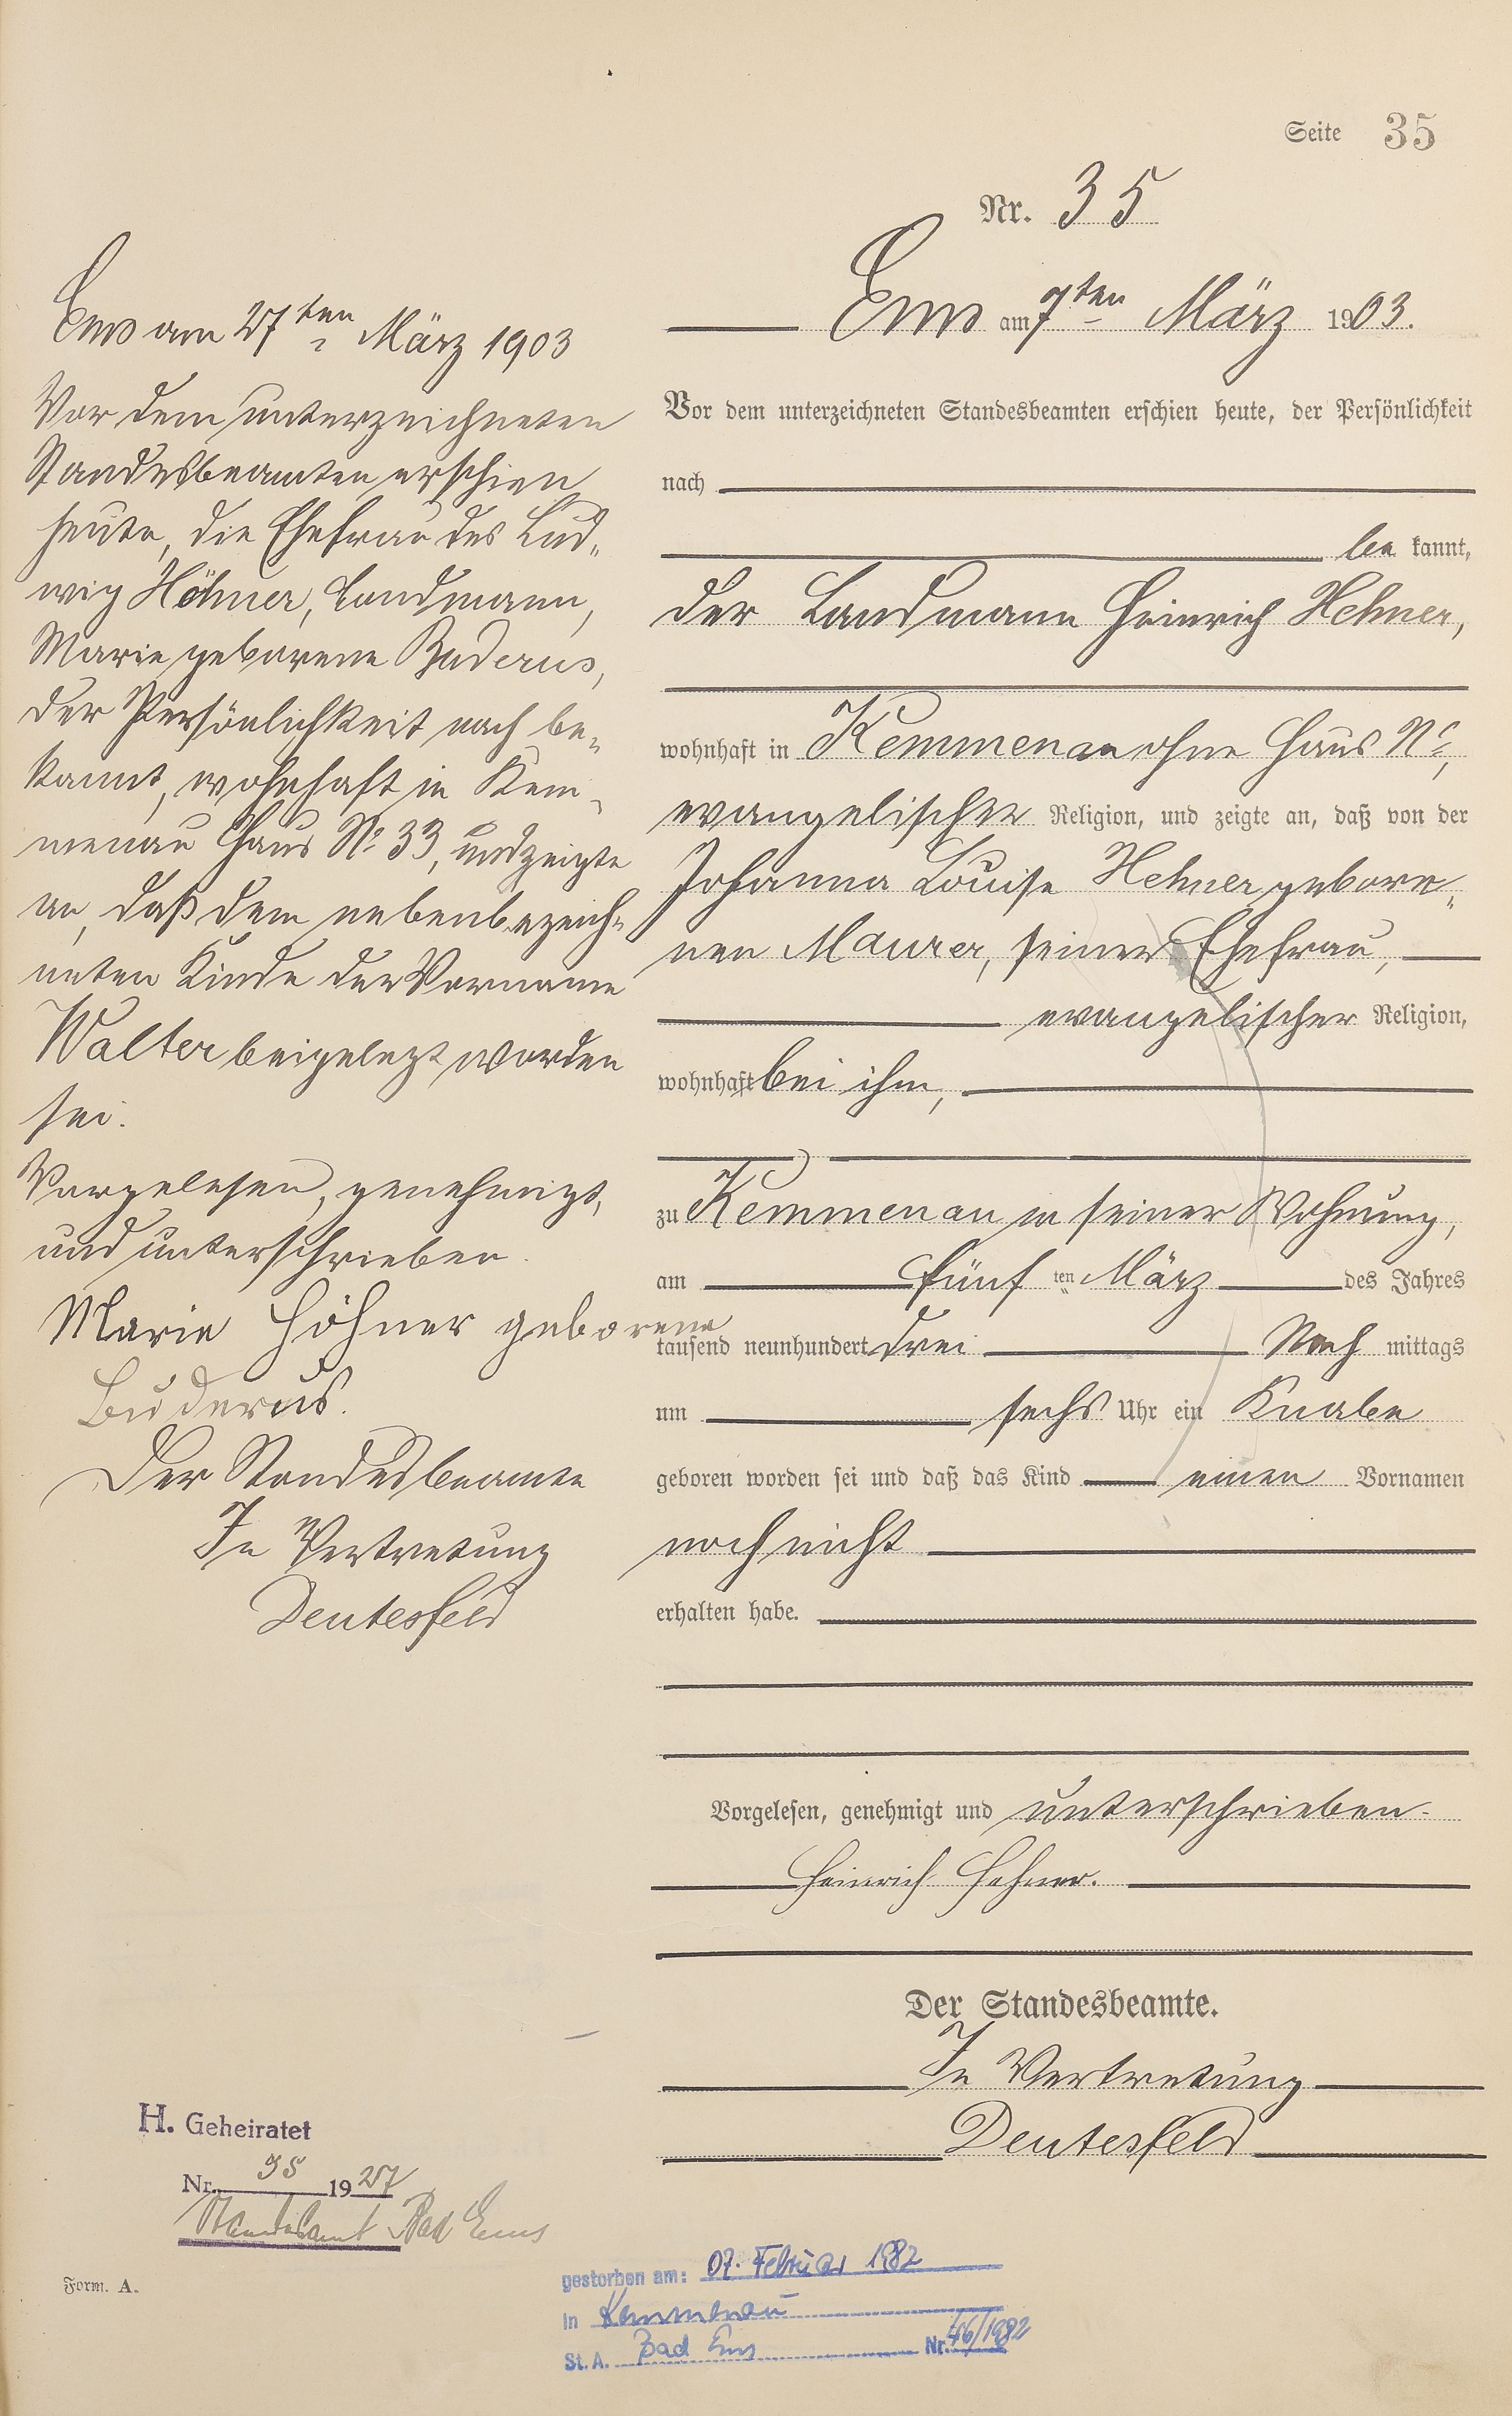 Seite 35
Nr. 35
Ems am 7ten März 1903.
Vor dem unterzeichneten Standesbeamten erschien heute, der Persönlichkeit
nach
be kannt,
der Landmann Heinrich Hehner,
wohnhaft in Kemmenau ohne Haus No,
evangelischer Religion, und zeigte an, daß von der
Johanna Louise Hehner gebore„
nen Maurer, seiner Ehefrau,
evangelischer Religion,
wohnhaft bei ihm,
zu Kemmenau in seiner Wohnung,
am fünf ten März des Jahres
tausend neunhundert drei Nach mittags
um sechs Uhr ein Knabe
geboren worden sei und daß das Kind einen Vornamen
noch nicht
erhalten habe.
Vorgelesen, genehmigt und unterschrieben.
Heinrich Hehner.
Der Standesbeamte.
In Vertretung
Deutesfeld
Ems am 27ten März 1903
Vor dem unterzeichneten
Standesbeamten erschien
heute, die Ehefrau des Lud„
wig Höhner, Landmann,
Marie geborene Buderus,
der Persönlichkeit nach be„
kannt, wohnhaft in Kem„
menau Haus No 33, und zeigte
an, daß dem nebenbezeich„
neten Kinde der Vorname
Walter beigelegt worden
sei.
Vorgelesen, genehmigt,
und unterschrieben.
Marie Höhner geborene
Buderus.
Der Standesbeamte
In Vertretung
Deutesfeld
H. Geheiratet
Nr. 35 1927
Standesamt Bad Ems
Form. A.
gestorben am: 07. Februar 1982
in Kemmenau
St. A. Bad Ems Nr. 46/1982